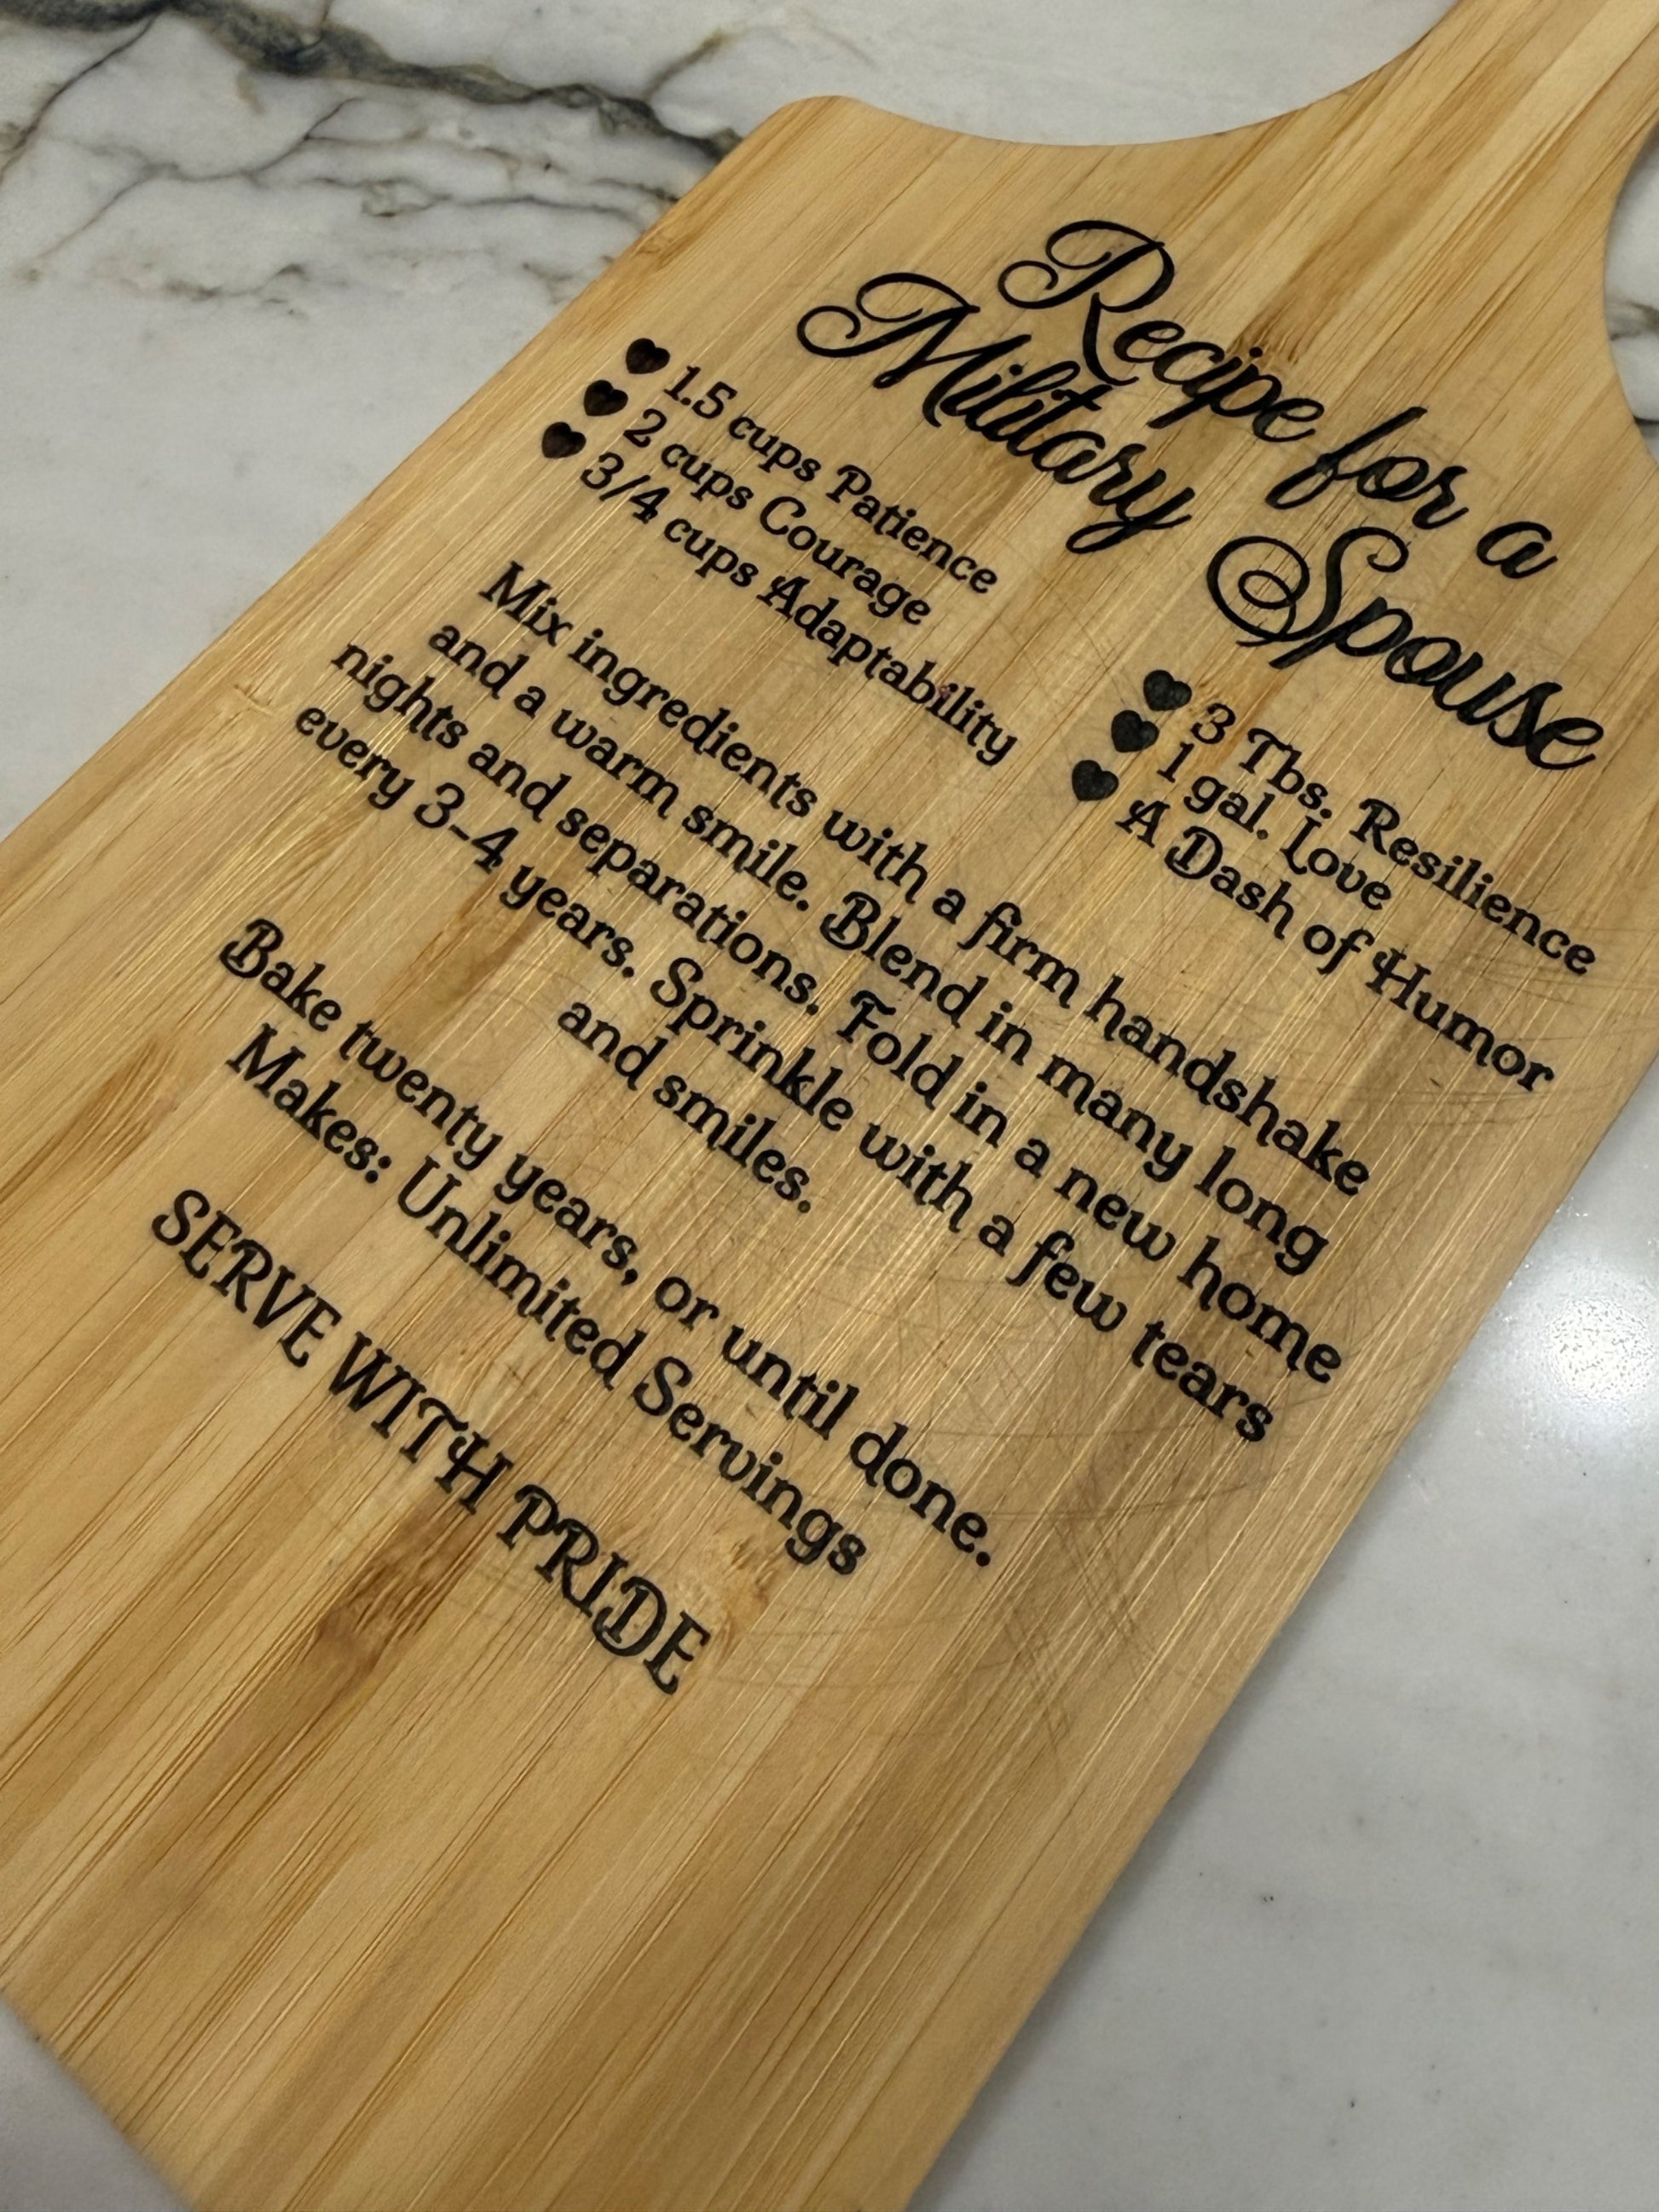 Recipe for a
Military Spouse
1.5 cups Patience
2 cups Courage
3/4 cups Adaptability
3 Tbs. Resilience
1 gal. Love
A Dash of Humor
Mix ingredients with a firm handshake
and a warm smile. Blend in many long
nights and separations. Fold in a new home
every 3-4 years. Sprinkle with a few tears
and smiles.
Bake twenty years, or until done.
Makes: Unlimited Servings
SERVE WITH PRIDE